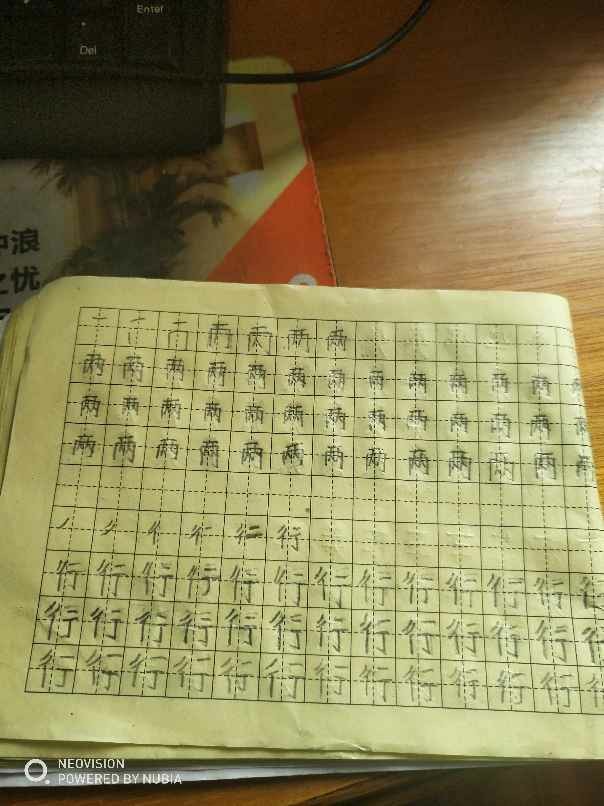 Enter
Del
浪
忧
两 两
两 两 两 两 两 两 两 两 两 两 两 两
两 两 两 两 两 两 两 两 两 两 两 两
两 两 两 两 两 两 两 两 两 两 两 两
行
行 行 行 行 行 行 行 行 行 行 行 行
行 行 行 行 行 行 行 行 行 行 行 行
行 行 行 行 行 行 行 行 行 行 行 行
NEOVISION
POWERED BY NUBIA